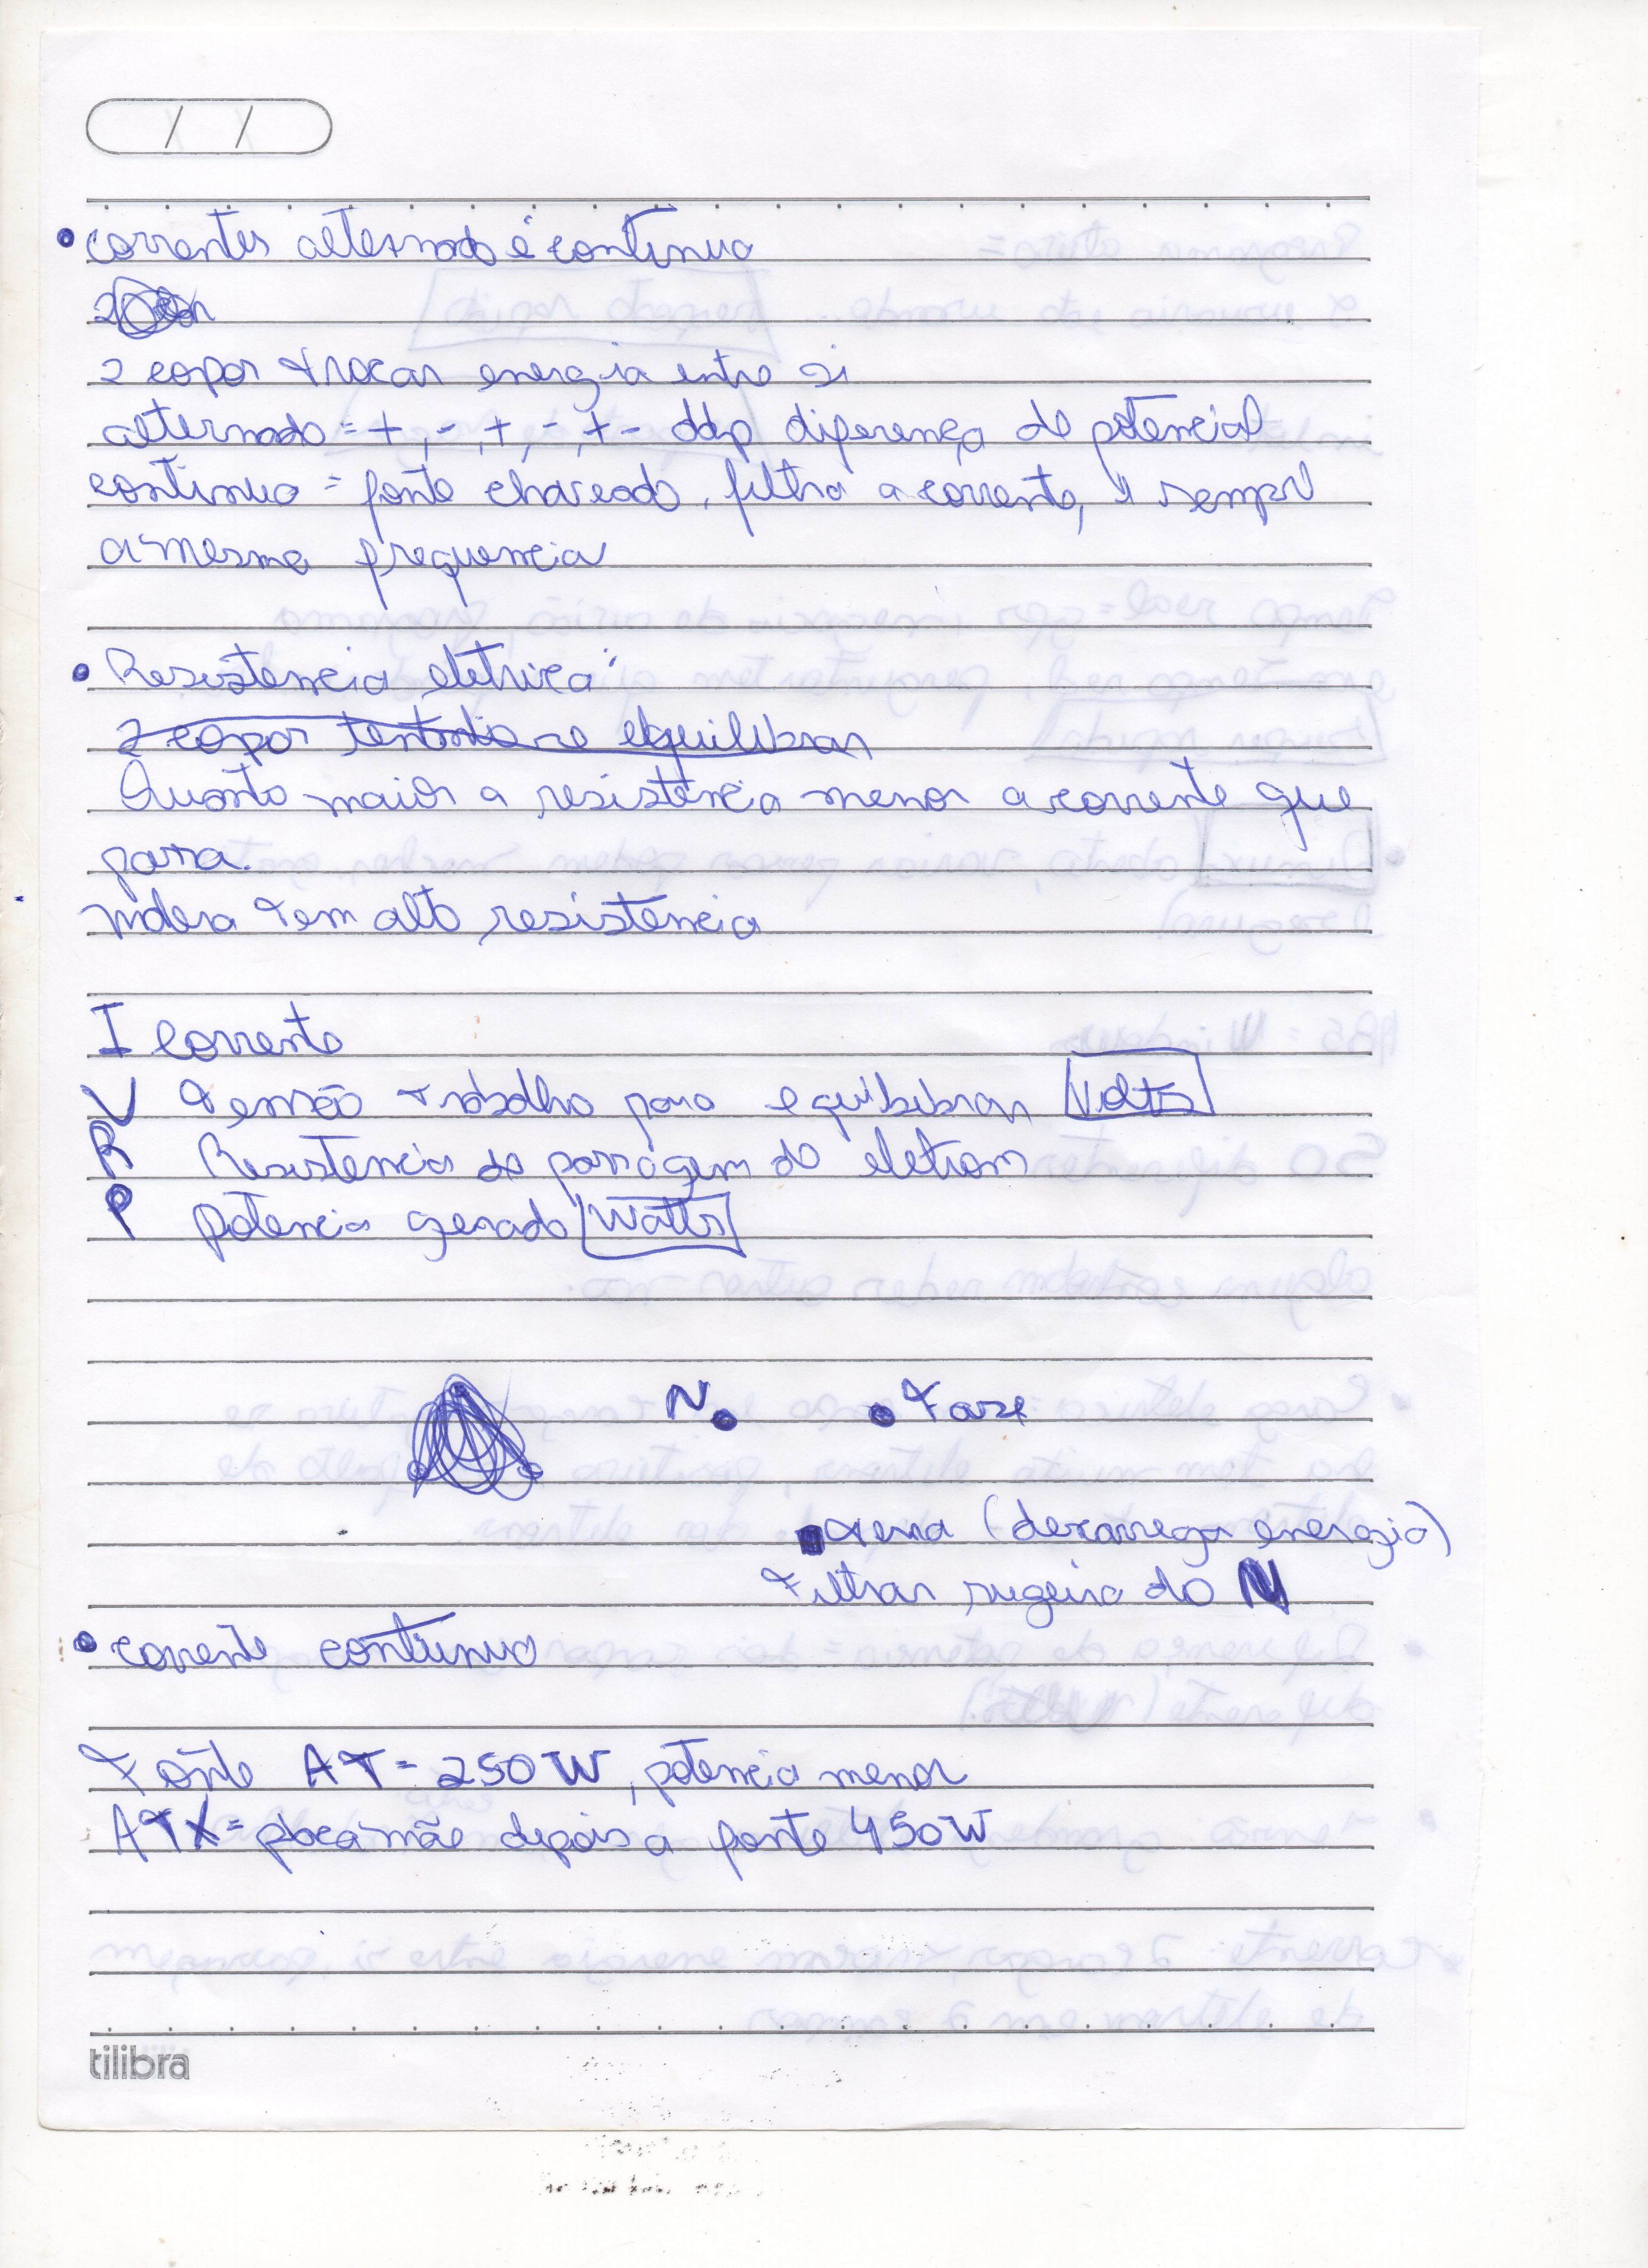 / /
• correntes alternada é continua
2 copos trocar energia entre si
alternado = +, -, +, -, + - ddp diferença de potencial
continua = fonte chaveado, filtra a corrente, é sempre
a mesma frequencia
• Resistencia eletrica:
2 copos tentando se equilibrar
Quanto maior a resistencia menor a corrente que
passa.
madera tem alta resistencia
I corrente
V tensão trabalho para equilibrar Volts
R Resistencia de passagem de eletrom
P potencia gerado Watts
N • • Fase
terra (descarrega energia)
Filtrar sugeira do N
• corrente continua
Fonte AT = 250W, potencia menor
ATX = placa mãe depois a fonte 450W
tilibra